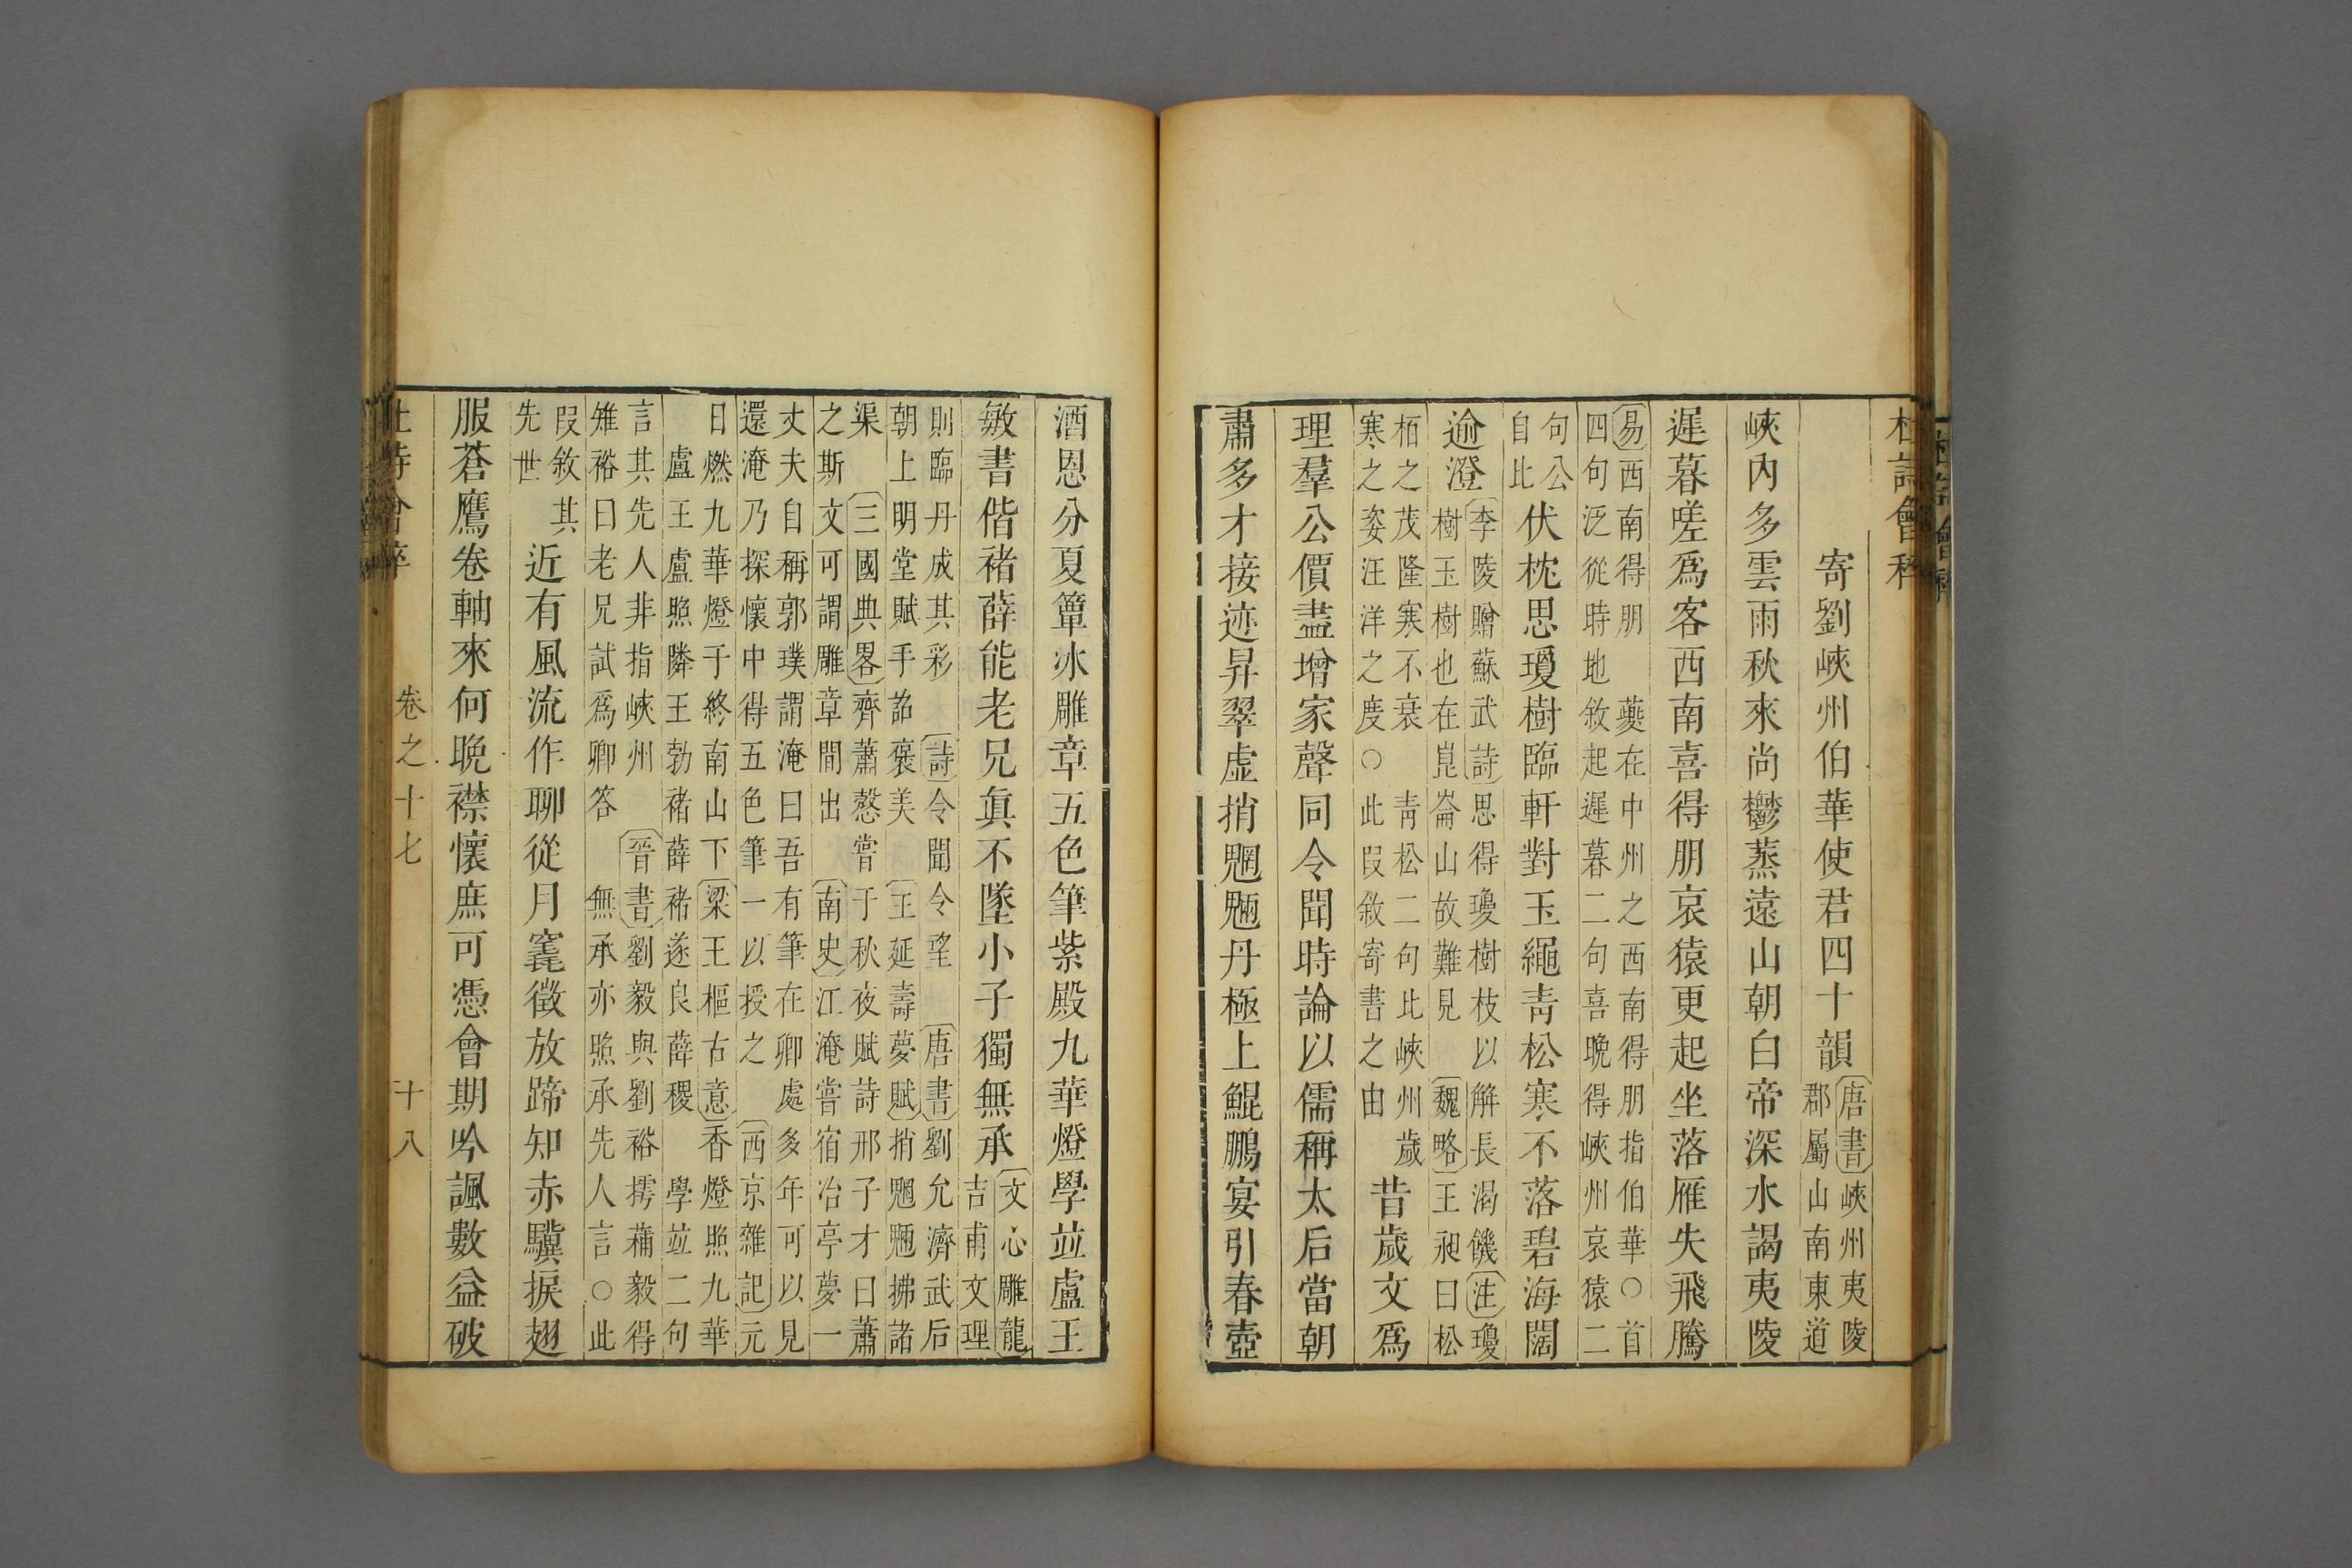 杜詩會稡
寄劉峽州伯華使君四十韻
唐書峽州夷陵
郡屬山南東道
峽內多雲雨秋來尚鬱蒸遠山朝白帝深水謁夷陵
遲暮嗟爲客西南喜得朋哀猿更起坐落雁失飛騰
易西南得朋 夔在中州之西南得朋指伯華○首
四句泛從時地敘起遲暮二句喜晚得峽州哀猿二
句公
自比
伏枕思瓊樹臨軒對玉繩靑松寒不落碧海闊
逾澄
李陵贈蘇武詩思得瓊樹枝以解長渴饑注瓊
樹玉樹也在崑崙山故難見 魏略王昶曰松
栢之茂隆寒不衰 靑松二句比峽州歲
寒之姿汪洋之度○此段敘寄書之由
昔歲文爲
理羣公價盡增家聲同令聞時論以儒稱太后當朝
肅多才接迹昇翠虛捎魍魎丹極上鯤鵬宴引春壺
酒恩分夏簟冰雕章五色筆紫殿九華燈學並盧王
敏書偕褚薛能老兄眞不墜小子獨無承
文心雕龍
吉甫文理
則臨丹成其彩 詩令聞令望 唐書劉允濟武后
朝上明堂賦手詔褒美 王延壽夢賦捎魍魎拂諸
渠 三國典畧齊蕭慤嘗于秋夜賦詩邢子才曰蕭
之斯文可謂雕章間出 南史江淹嘗宿冶亭夢一
丈夫自稱郭璞謂淹曰吾有筆在卿處多年可以見
還淹乃探懷中得五色筆一以授之 西京雜記元
日燃九華燈于終南山下 梁王樞古意香燈照九華
盧王盧照隣王勃褚薛褚遂良薛稷 學並二句
言其先人非指峽州 晉書劉毅與劉裕摴蒱毅得
雉裕曰老兄試爲卿答 無承亦照承先人言○此
段敘其
先世
近有風流作聊從月竁徵放蹄知赤驥捩翅
服蒼鷹卷軸來何晚襟懷庶可憑會期吟諷數益破
杜詩會稡 卷之十七 十八